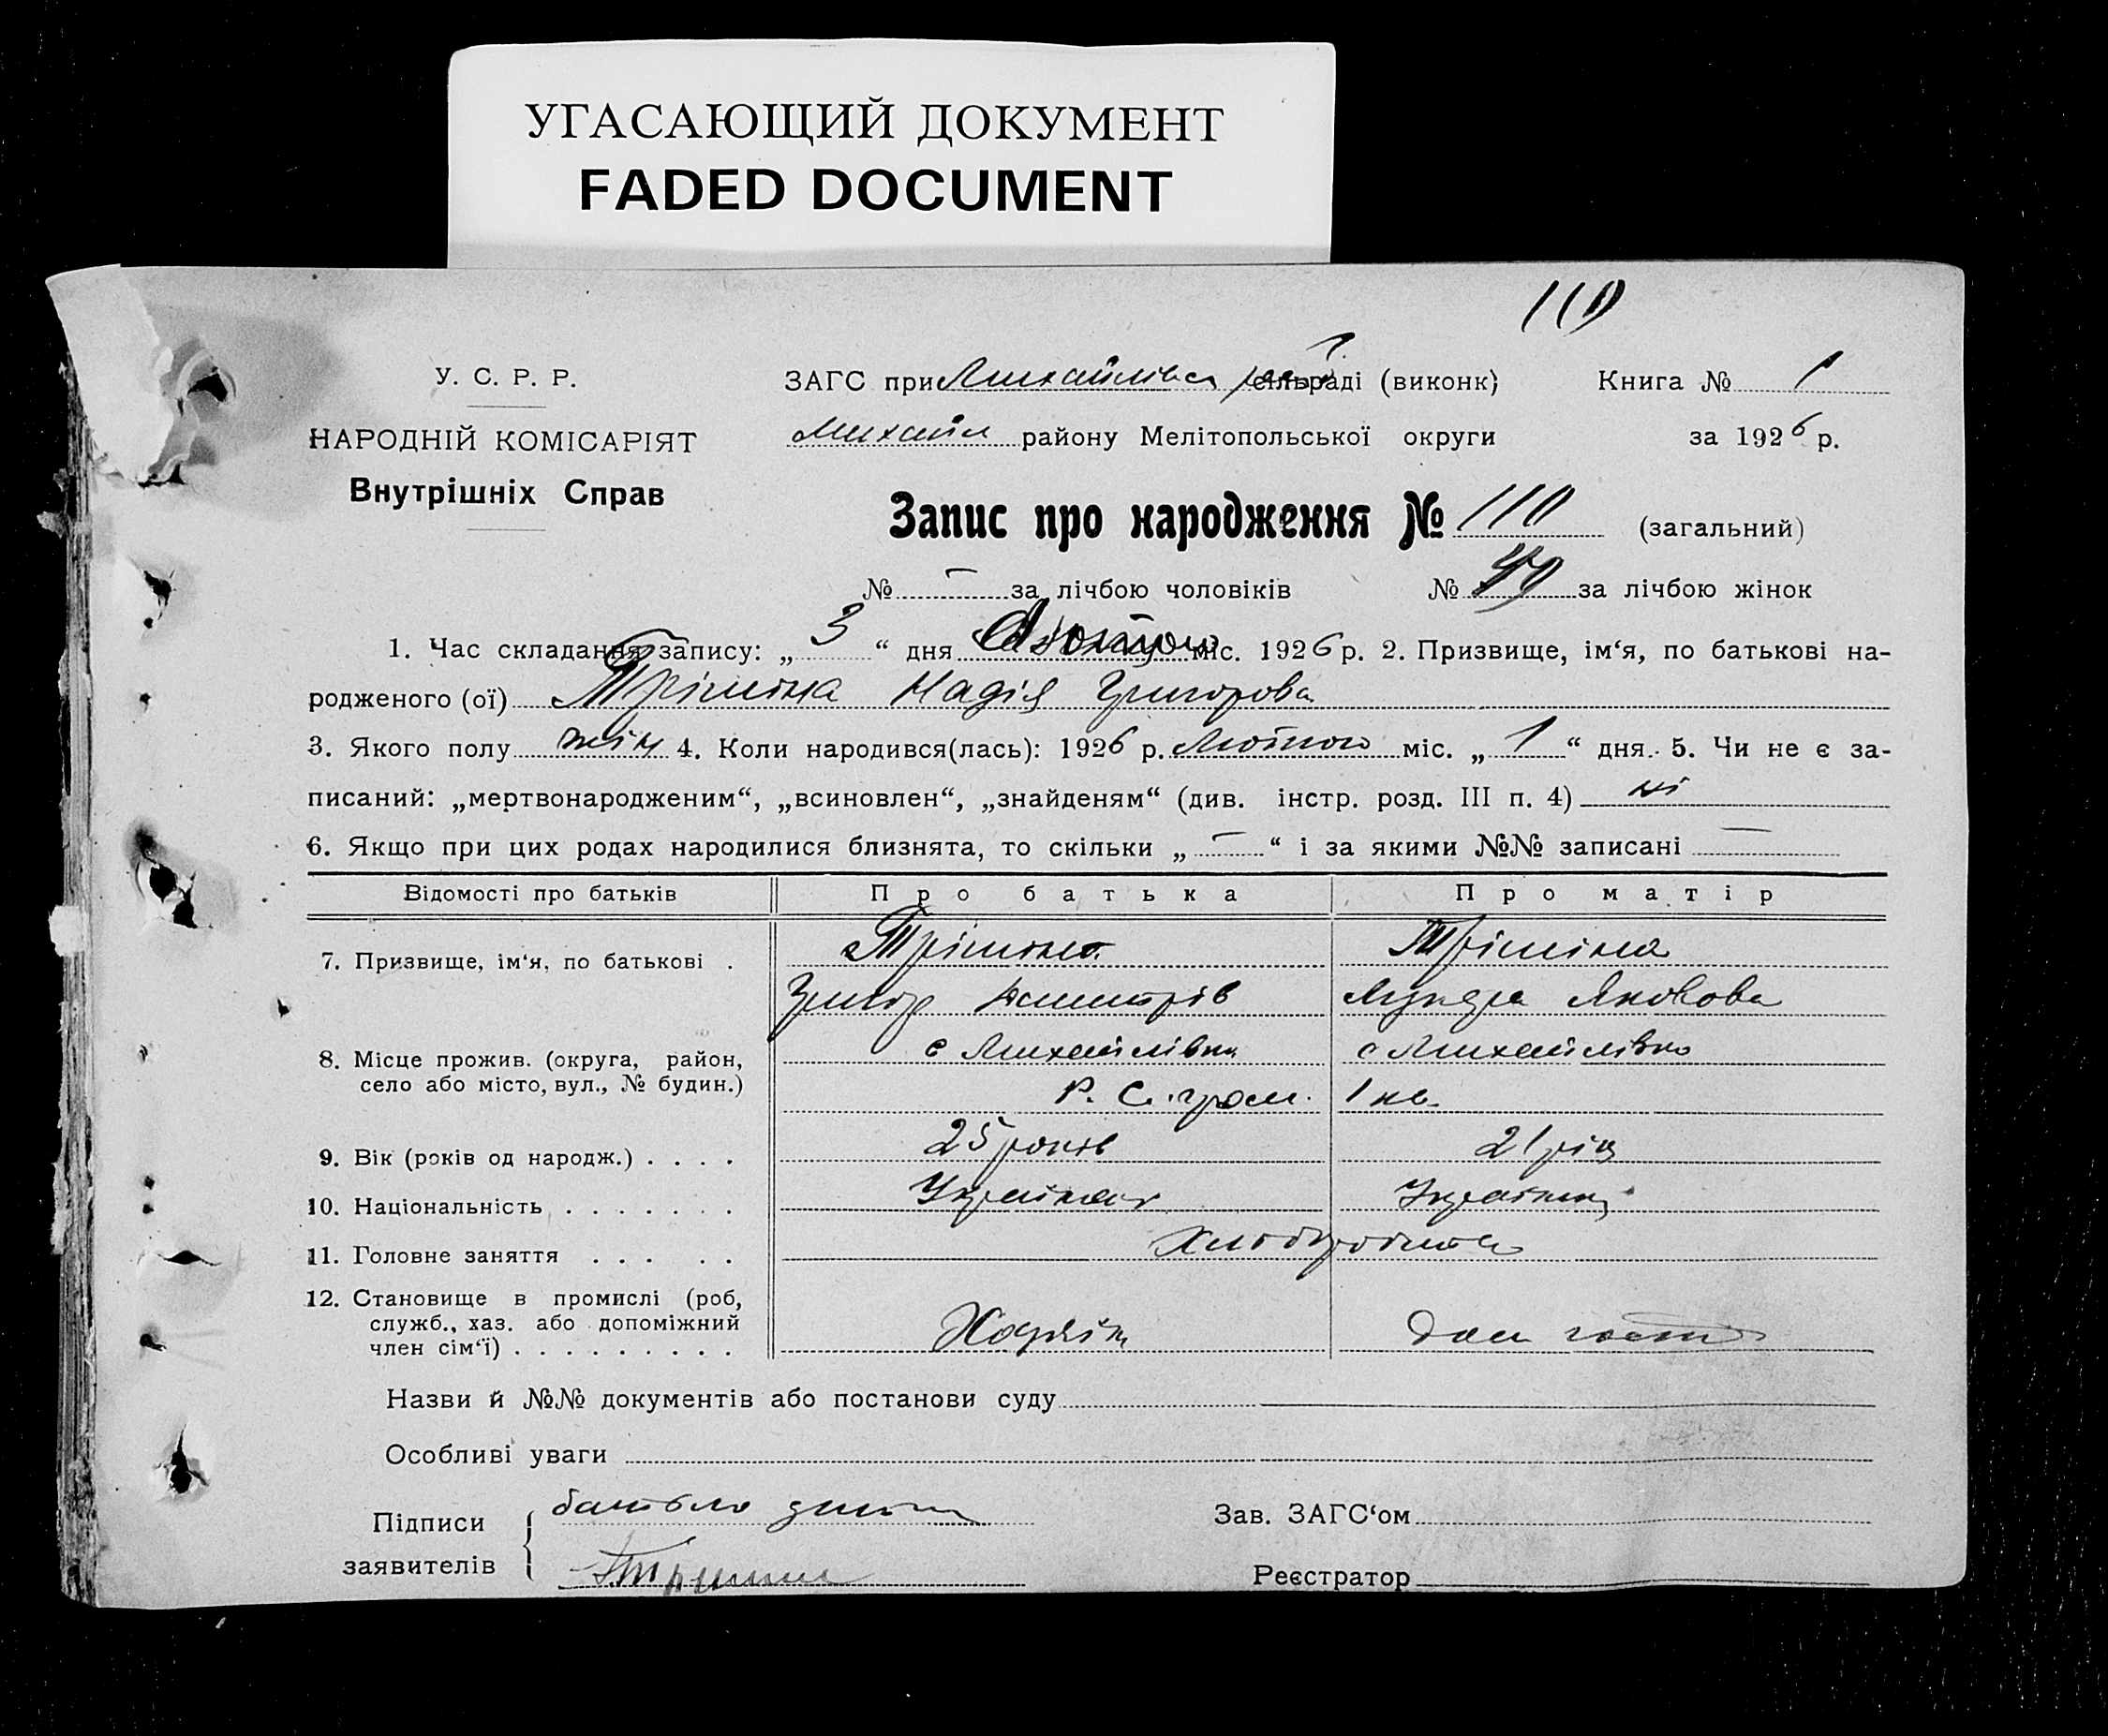 УГАСАЮЩИЙ ДОКУМЕНТ
FADED DOCUMENT
110
У. С. Р. Р.
НАРОДНІЙ КОМІСАРІЯТ
Внутрішніх Справ
ЗАГС при Михайлівск сільраді (виконк)
Книга № 1
Михайл району Мелітопольської округи
за 1926 р.
Запис про народження № 110 (загальний)
№ — за лічбою чоловіків № 49 за лічбою жінок
1. Час складання запису: „ 3 “ дня Лютого міс. 1926 р. 2. Призвище, ім‘я, по батькові на-
родженого (ої) Трішина Надія Григорова
3. Якого полу жін 4. Коли народився(лась): 1926 р. Лютого міс. „ 1 “ дня. 5. Чи не є за-
писаний: „мертвонародженим“, „всиновлен“, „знайденям“ (див. інстр. розд. III п. 4) ні
6. Якщо при цих родах народилися близнята, то скільки „ — “ і за якими №№ записані —
Відомості про батьків Про батька Про матір
7. Призвище, ім‘я, по батькові . Трішин Трішина
Григор Дмитрів Яковова
8. Місце прожив. (округа, район, с Михайлівка с Михайлівка
село або місто, вул., № будин.) Р. С. гром. 1 кв.
9. Вік (років од народж.) . . . . 25 років 21 рік
10. Національність . . . . . . . Українец Українка
11. Головне заняття . . . . . Хліборобство
12. Становище в промислі (роб,
служб., хаз. або допоміжний
член сім‘ї) . . . . . . . . . Хазяїн дом
Назви й №№ документів або постанови суду
Особливі уваги
Підписи
заявителів
батько
Тришин
Зав. ЗАГС‘ом
Реєстратор